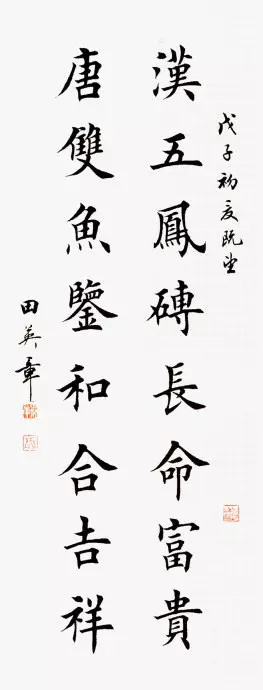 戊子初夏既望
漢五鳳磚長命富貴
唐雙魚鑒和合吉祥
田英章